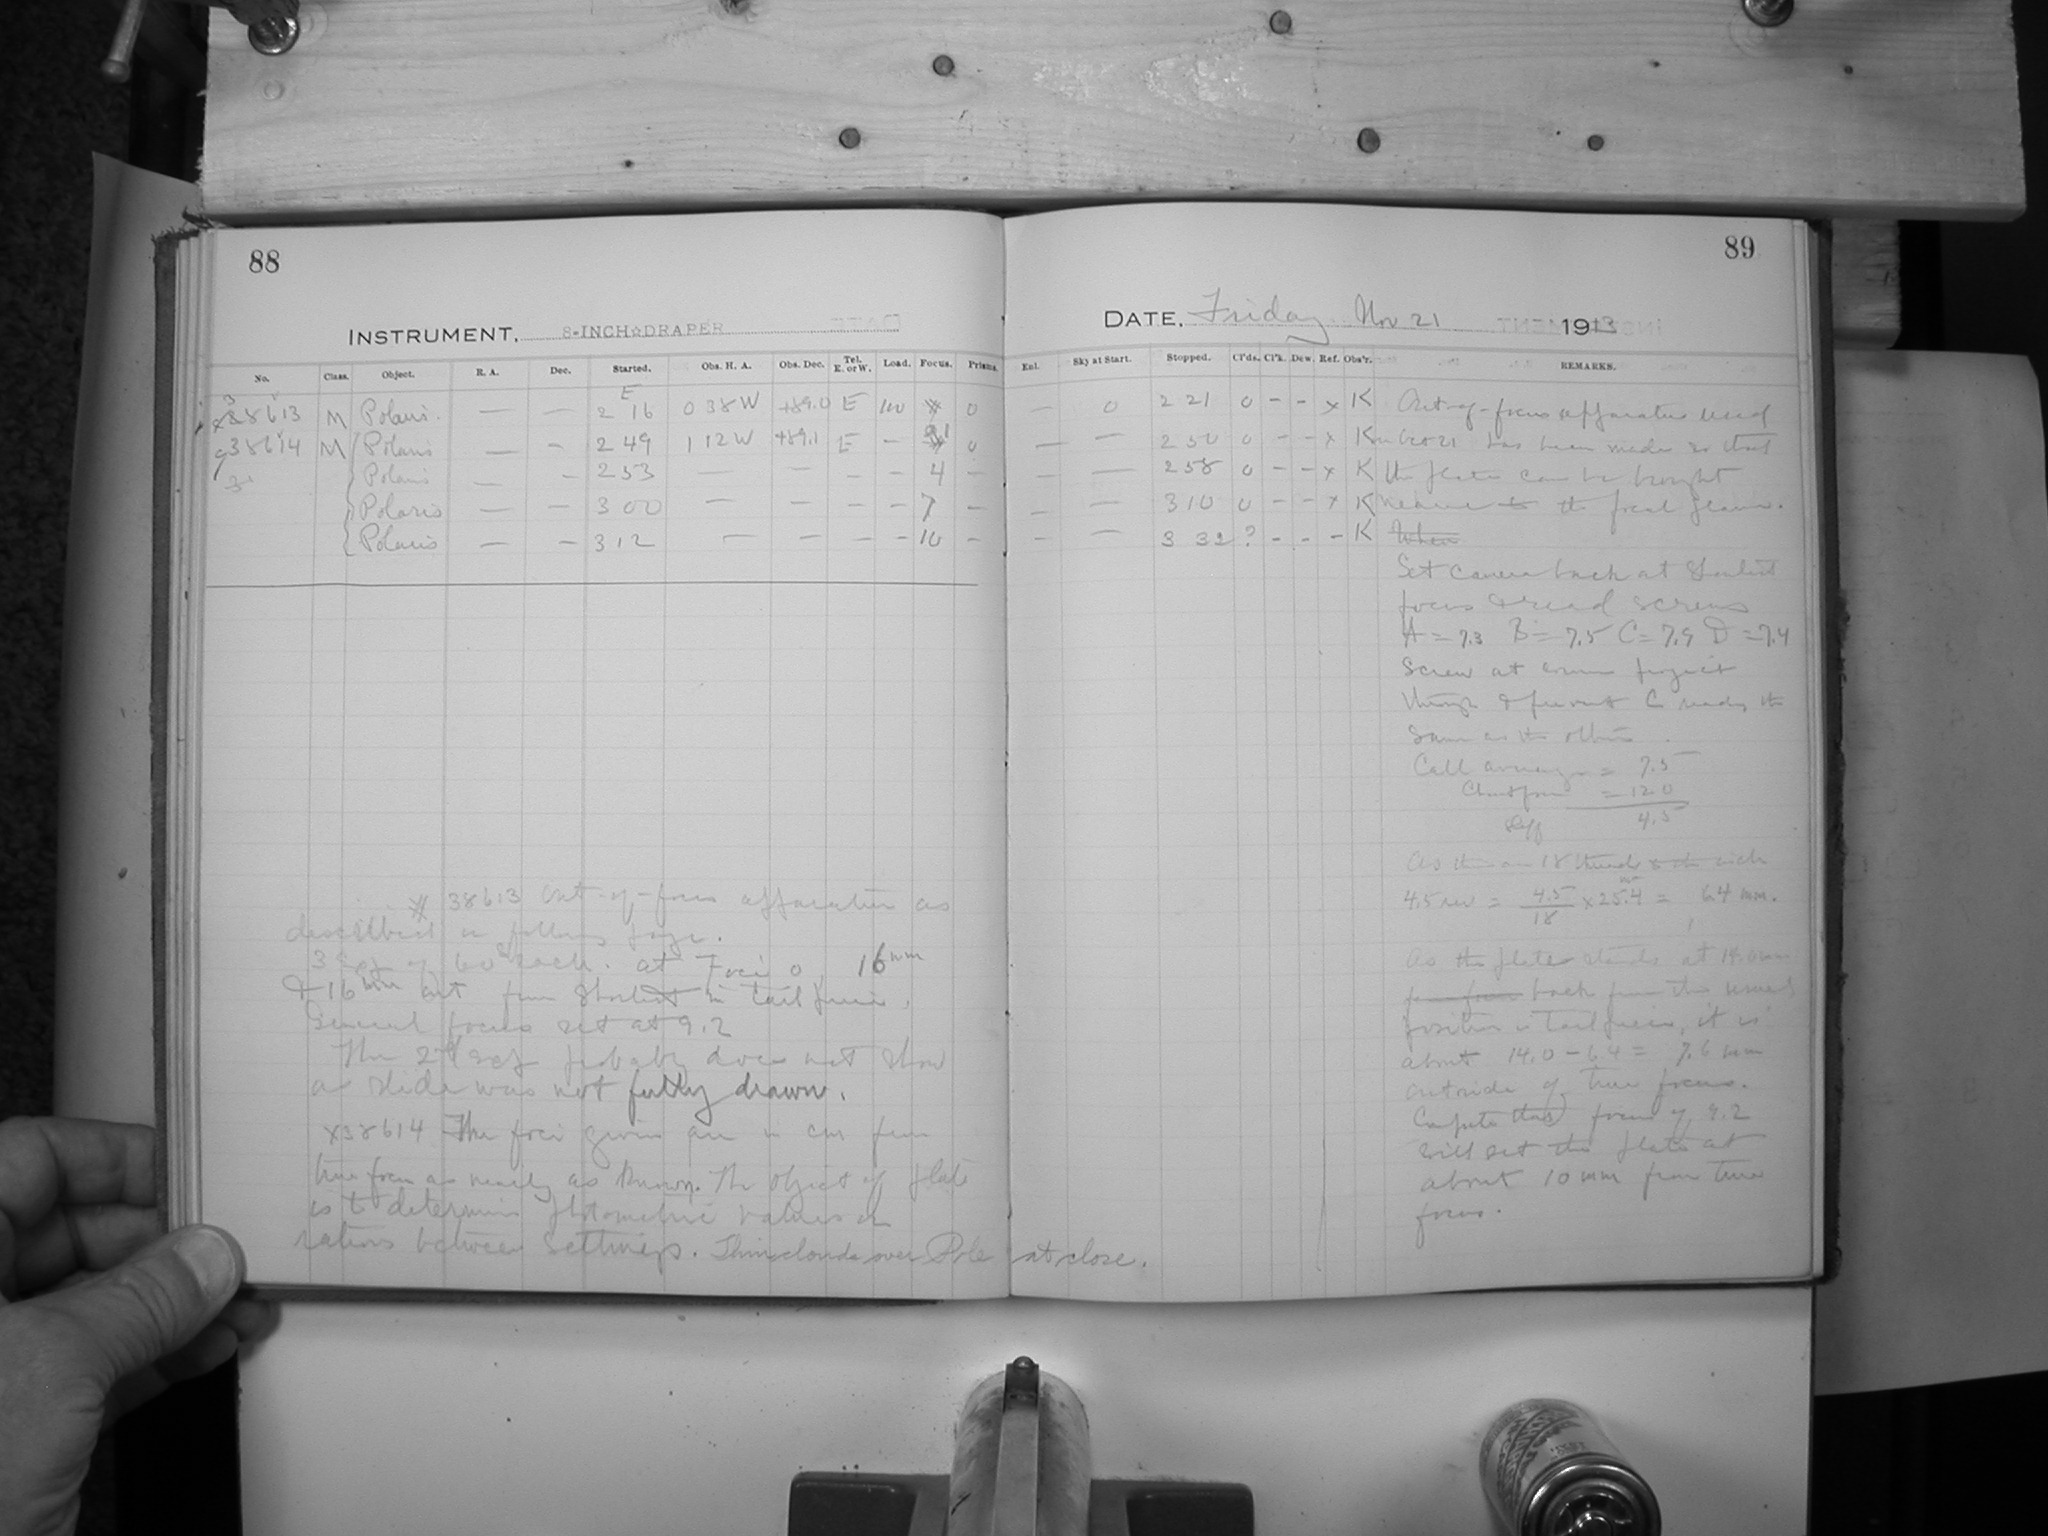 88
INSTRUMENT. 8-INCH☆DRAPER
No. Class. Object. R. A. Dec. Started. Obs. H. A. Obs. Dec. Tel. E. or W. Load. Focus. Prisms.
38613 M Polaris. — — 2 16 0 38 W +89.0 E 100 * 0
38614 M Polaris — — 2 49 1 12 W +89.1 E — 0
Polaris — — 2 53 — — — — 4 —
Polaris — — 3 00 — — — — 7 —
Polaris — — 3 12 — — — — 10 —
* 38613 Out-of-focus apparatus as
described on following page.
3 of 60s each. at Foci 0, 16mm
& 16mm out from shortest in tail piece.
General focus set at 9.2
The 2nd exp probably does not show
as slide was not fully drawn.
x38614 The foci given are in cm from
true focus as nearly as known. The object of plate
is to determine photometric values or
ratios between settings. Thin clouds over Pole at close.
89
DATE. Friday Nov 21 1913
Enl. Sky at Start. Stopped. Cl'ds. Cl'k. Dew. Ref. Obs'r. REMARKS.
— 0 2 21 0 - - x K Out-of-focus apparatus used
— — 2 50 0 - - x K has been made so that
— — 2 58 0 - - x K the plate can be brought
— — 3 10 0 - - x K nearer to the focal plane.
— — 3 32 ? - - - K When
Set camera back at shortest
focus & read screws
A = 7.3 B = 7.5 C = 7.9 D = 7.4
Screw at corner project
through & prevent C reading the
same as the others.
Call average = 7.5
= 12.0
Diff 4.5
As there are 18 threads to the inch
4.5 rev = 4.5/18 × 25.4 = 6.4 mm.
As the plate stands at 14.0 mm
back from the usual
position in tail piece, it is
about 14.0 - 6.4 = 7.6 mm
outside of true focus.
Compute that focus of 9.2
will set the plate at
about 10 mm from true
focus.